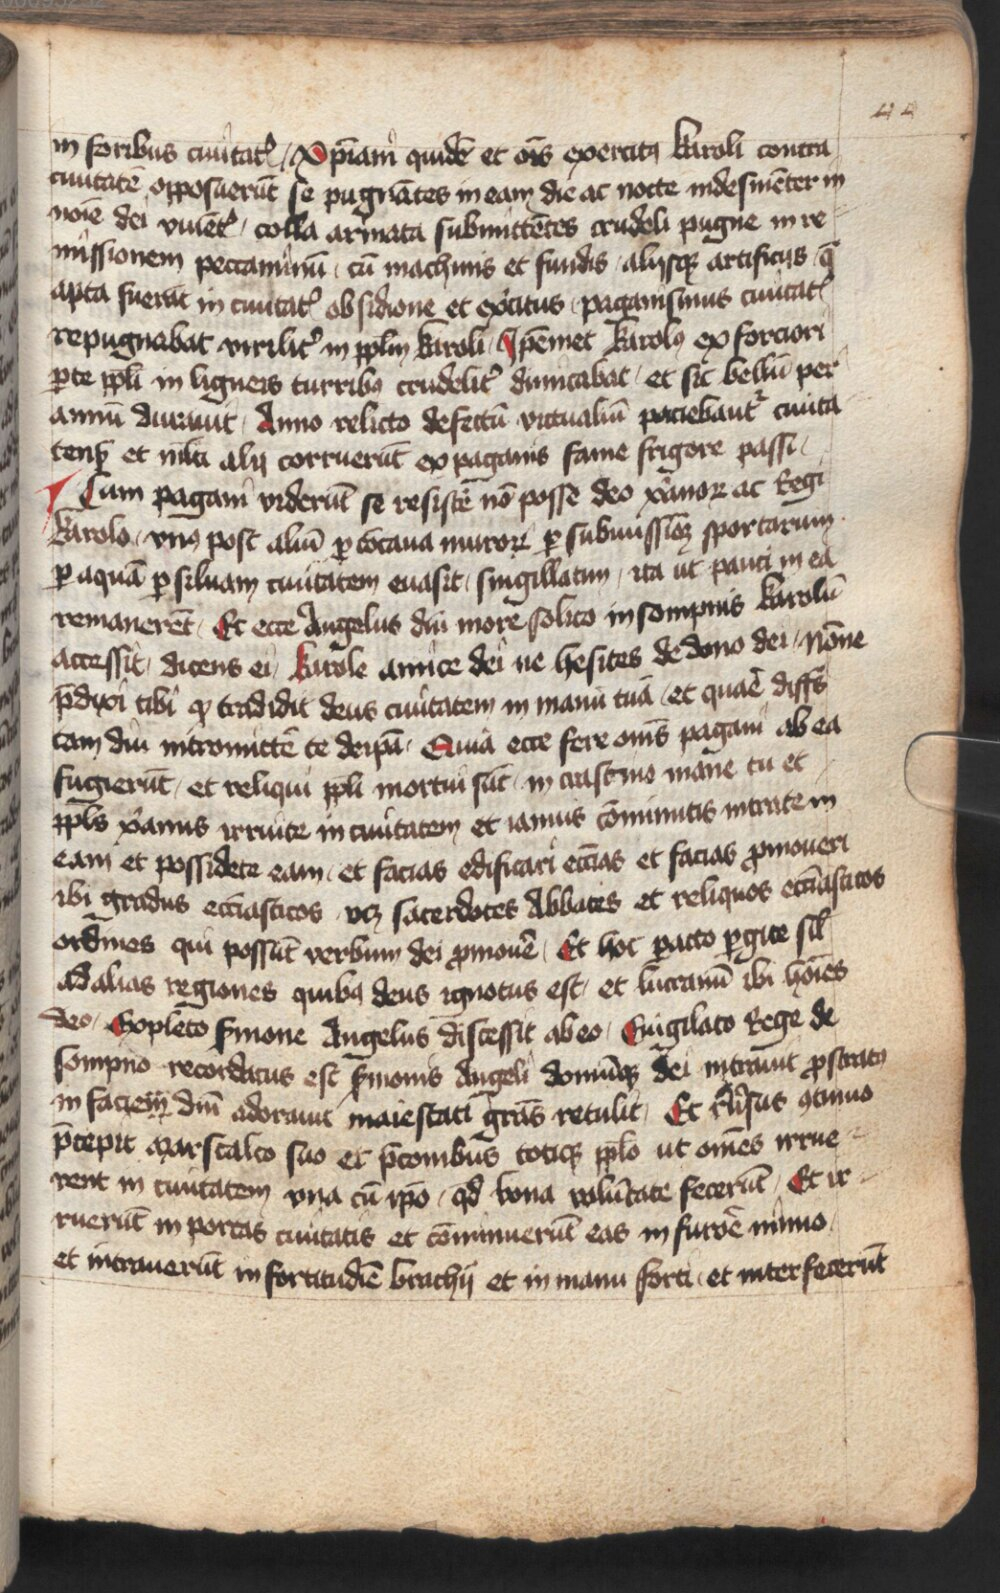 44
in foribus ciuitatꝭ / Xp̄iani quidē et om̄s exercitꝯ karoli contra
ciuitatē opposuerūt se pugnātes in eam die ac nocte indesinēter in
noīe dei viuētꝭ / colla armata submittētes crudeli pugne in re
missionem peccaminū / cū machinis et fundis / alijsqꝫ artificijs / q̄
apta fuerāt in ciuitatꝭ obsidione et ex̄citus / paganissimus ciuitatꝭ
repugnabat virilitꝰ in ppl̄m karoli / Ip̄emet karolꝯ ex forciori
ꝑte ppl̄i in ligneis turribꝯ crudelitꝰ dimicabat / et sic bellū per
annū durauit / Anno relicto defectū victualiū paciebantᷣ ciuita
tensꝭ et ml̄ti alij corruerūt ex paganis fame frigore passi /
Cum pagani viderūt se resistē nō posse deo xp̄ianoꝝ ac Regi
karolo / vnꝯ post aliū ꝑ cōcaua muroꝝ ꝑ submissiōꝫ sportarum
ꝑ aquā ꝑ siluam ciuitatem euasit / singillatim / ita ut pauci in ea
remanerēt / Et ecce Angelus dn̄i more solito in sompnis karolū
accessit / dicens ei / karole amice dei ne hesites de dono dei / Nōne
p̄dixi tibi qꝫ tradidit deus ciuitatem in manū tuā / et quaē diff̄s
tam diu intromittē te de ip̄a / Quia ecce fere om̄s pagani ab ea
fugierūt / et reliqui ppl̄i mortui sūt / in crastino mane tu et
ppl̄s xp̄ianus irruite in ciuitatem et ianuis cōminutis intrate in
eam et possidete eam / et facias edificari ecc̄ias et facias ꝓmoueri
ibi gradus ecc̄iasticos / vꝫ sacerdotes Abbates et reliquos ecc̄iasticos
ordines qui possūt verbum dei ꝓmouē / Et hoc pacto ꝑgite sil̄
ad alias regiones quibꝯ deus ignotus est / et lucramī ibi hoīes
deo / Expleto s̄mone Angelus discessit ab eo / Euigilato Rege de
sompno recordatus est s̄monis Angeli domūqꝫ dei intrauit ꝓstratꝯ
in faciem dn̄m adorauit maiestati gr̄as retulit / Et r̄usus ꝯtinuo
p̄cepit marscalco suo et p̄conibus totiqꝫ ppl̄o ut om̄es irrue
rent in ciuitatem vna cū ip̄o / qd̄ bona volūtate fecerūt / Et ir
ruerūt in portas ciuitatis et cōminuerūt eas in furoē nimio
et intrauerūt in fortitudīe brachij et in manu forti / et interfecerūt